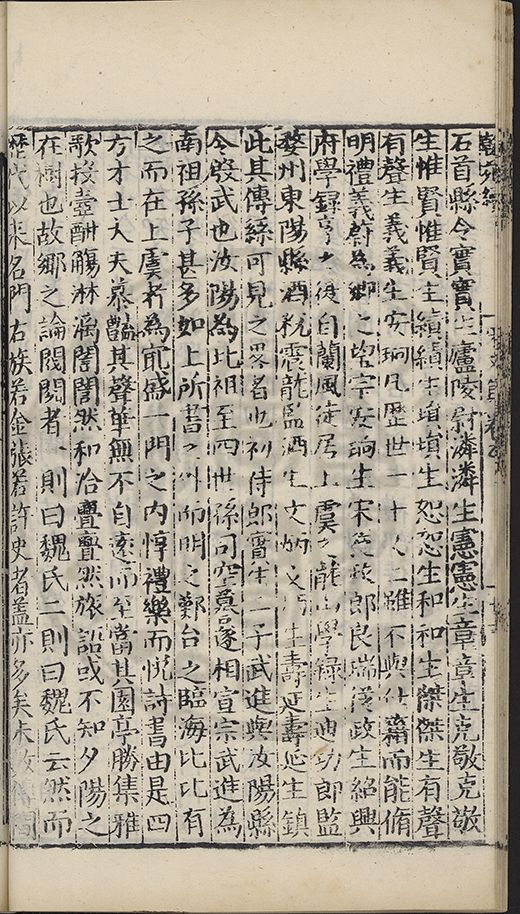 石首縣令實實生廬陵尉潾潾生憲憲生章章生克敬克敬
生惟賢惟賢生績績生塤塤生恕恕生和和生傑傑生有聲
有聲生義義生安珦凡歷世二十八雖不與仕籍而能脩
明禮義蔚為鄉之望宗安珦生宋從政郎良瑞從政生紹興
府學錄亨亨徙白蘭風徙居上虞之龍山學錄生迪功郎監
婺州東陽縣酒稅震龍監酒生文炳文炳生壽延壽延生鎮
此其傳緒可見之畧者也初侍郎霄生二子武進與汝陽縣
令殷武也汝陽為北祖至四世孫司空謩遂相宣宗武進為
南祖孫子甚多如上所書之外而明之鄞台之臨海比比有
之而在上虞者為貳盛一門之內惇禮樂而悅詩書由是四
方才士大夫慕豔其聲華無不自遠而至當其園亭勝集雅
歌投壺酬觴淋漓誾誾然和洽亹亹然旅詔或不知夕陽之
在樹也故鄉之論閥閱者一則曰魏氏二則曰魏氏云然而
歷代以來名門右族若金張若許史者蓋亦多矣未